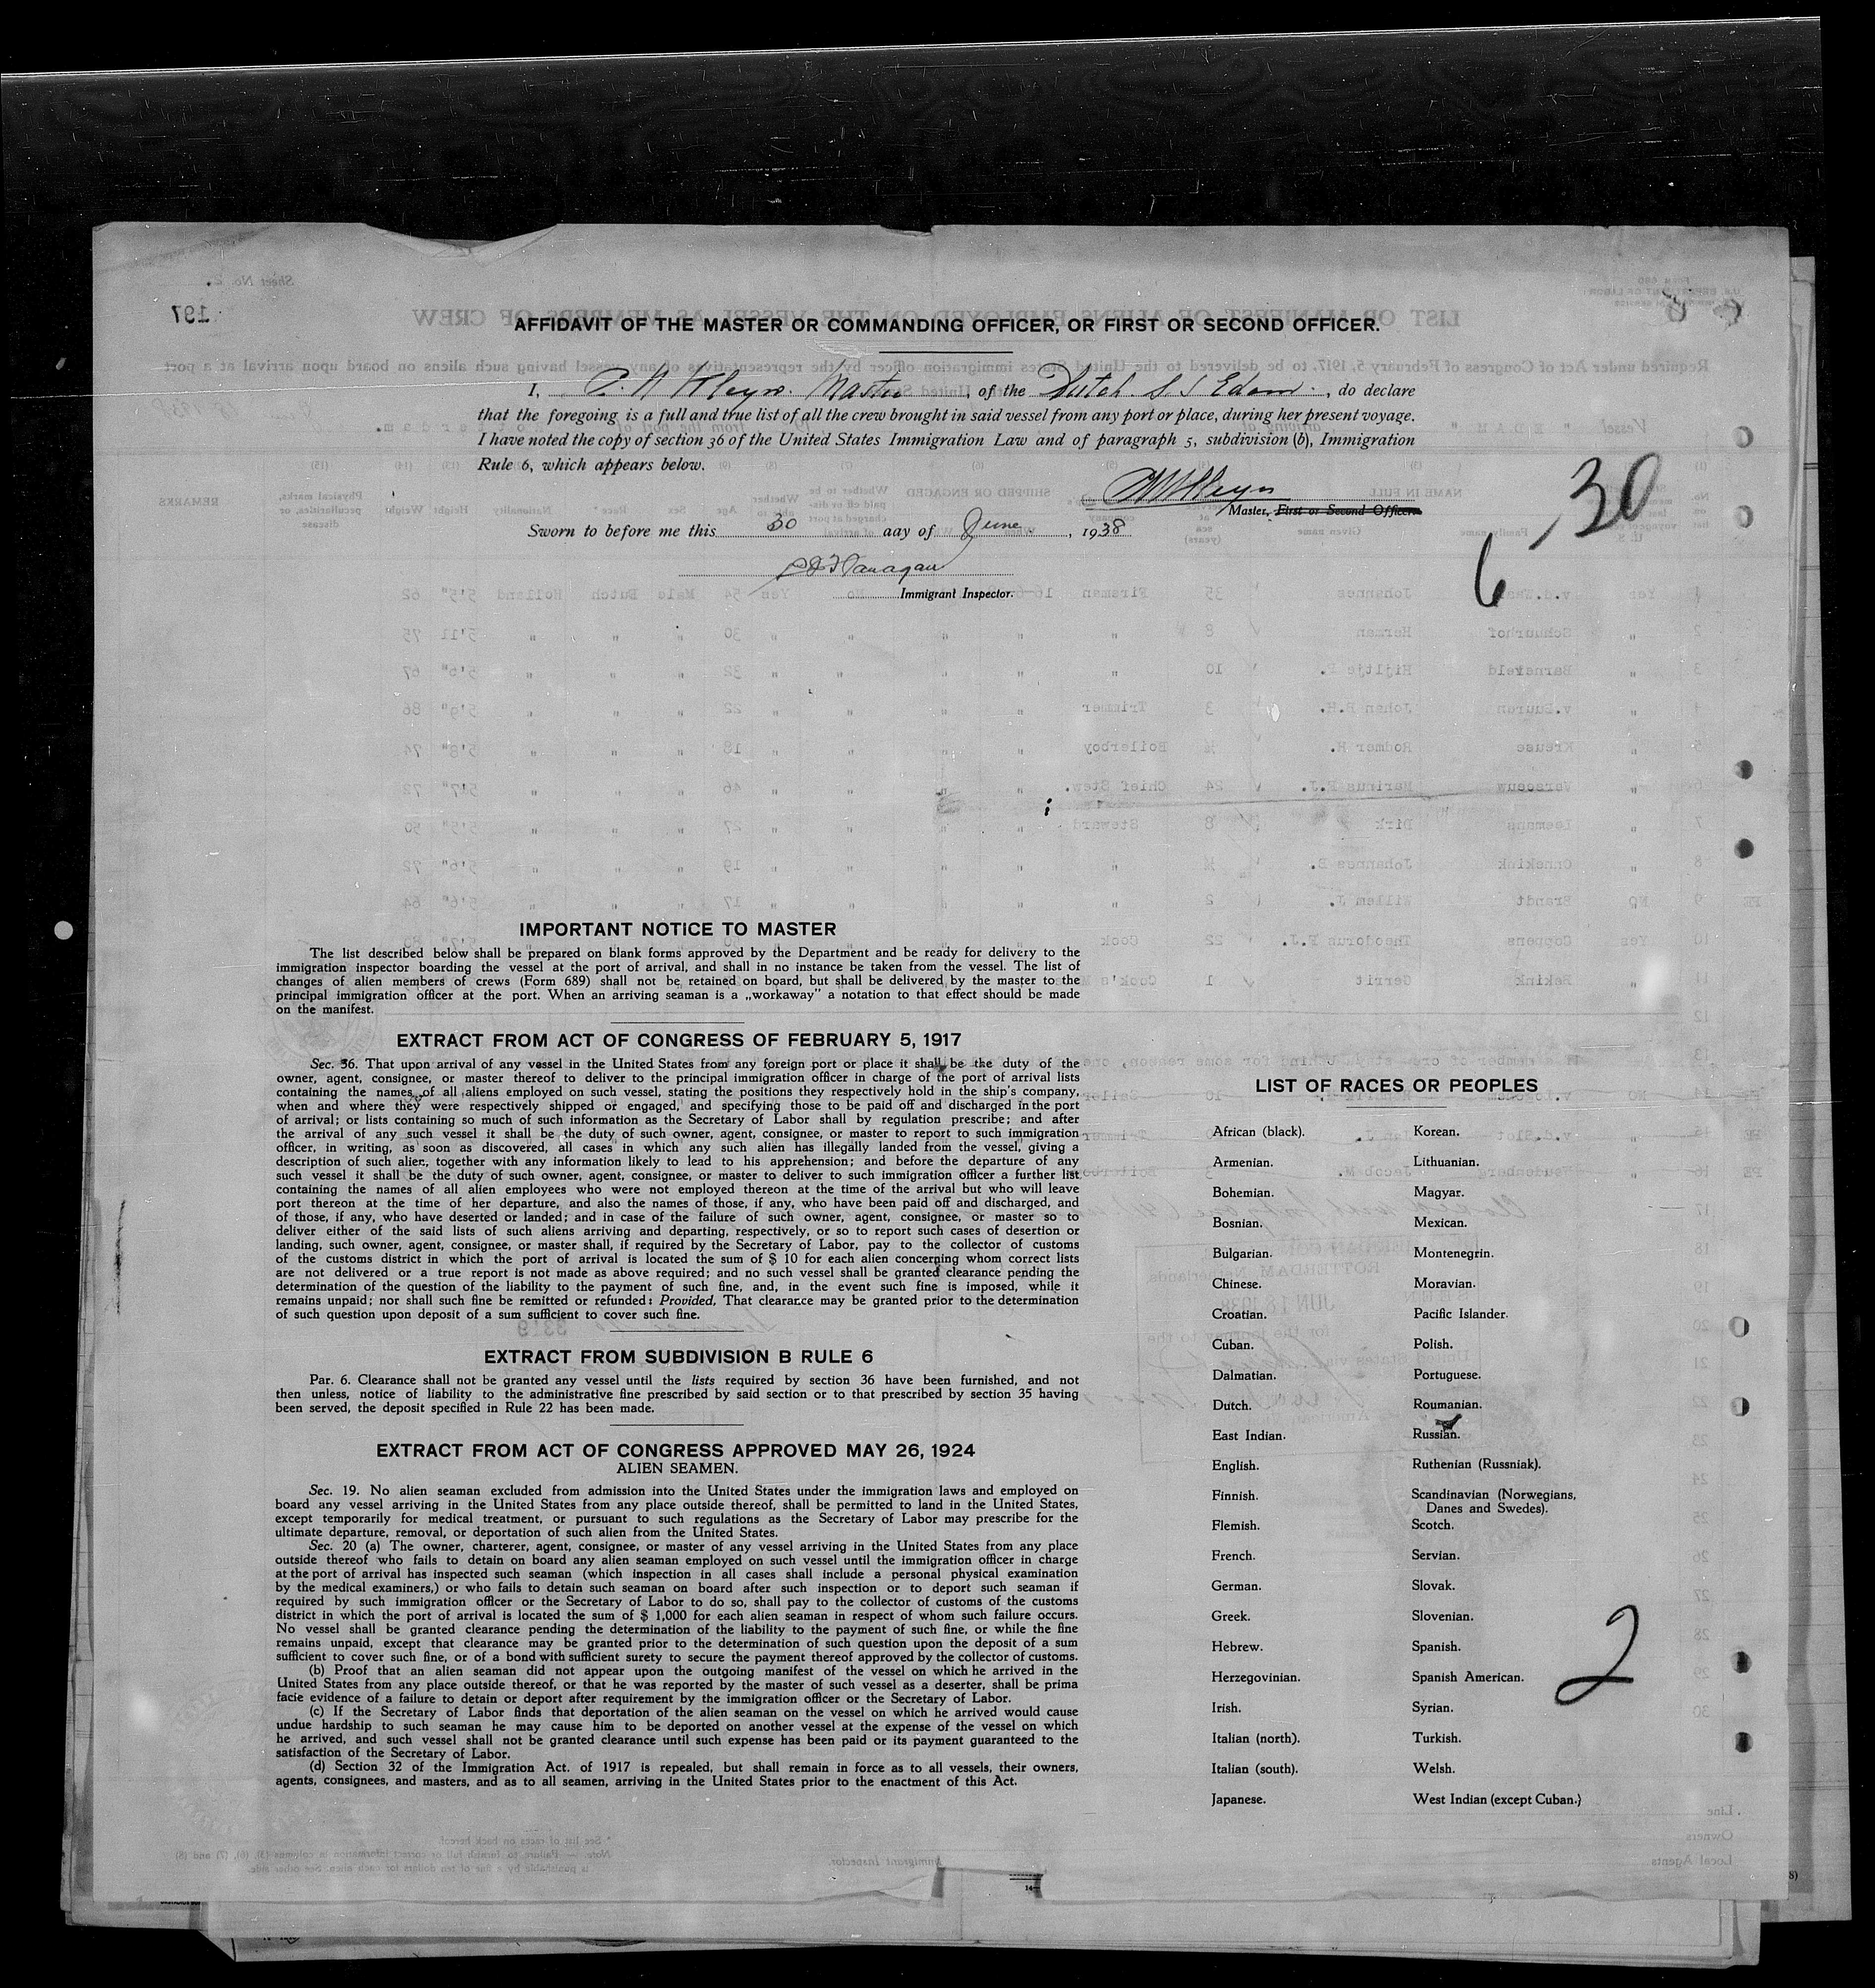 AFFIDAVIT OF THE MASTER OR COMMANDING OFFICER, OR FIRST OR SECOND OFFICER.
I, Master, of the Dutch S.S Edam, do declare
that the foregoing is a full and true list of all the crew brought in said vessel from any port or place, during her present voyage.
I have noted the copy of section 36 of the United States Immigration Law and of paragraph 5, subdivision (b), Immigration
Rule 6, which appears below.
Master, First or Second Officer.
Sworn to before me this 30 day of June, 1938
Immigrant Inspector.
6/30
IMPORTANT NOTICE TO MASTER
The list described below shall be prepared on blank forms approved by the Department and be ready for delivery to the
immigration inspector boarding the vessel at the port of arrival, and shall in no instance be taken from the vessel. The list of
changes of alien members of crews (Form 689) shall not be retained on board, but shall be delivered by the master to the
principal immigration officer at the port. When an arriving seaman is a „workaway” a notation to that effect should be made
on the manifest.
EXTRACT FROM ACT OF CONGRESS OF FEBRUARY 5, 1917
Sec. 36. That upon arrival of any vessel in the United States from any foreign port or place it shall be the duty of the
owner, agent, consignee, or master thereof to deliver to the principal immigration officer in charge of the port of arrival lists
containing the names of all aliens employed on such vessel, stating the positions they respectively hold in the ship's company,
when and where they were respectively shipped or engaged, and specifying those to be paid off and discharged in the port
of arrival; or lists containing so much of such information as the Secretary of Labor shall by regulation prescribe; and after
the arrival of any such vessel it shall be the duty of such owner, agent, consignee, or master to report to such immigration
officer, in writing, as soon as discovered, all cases in which any such alien has illegally landed from the vessel, giving a
description of such alien, together with any information likely to lead to his apprehension; and before the departure of any
such vessel it shall be the duty of such owner, agent, consignee, or master to deliver to such immigration officer a further list
containing the names of all alien employees who were not employed thereon at the time of the arrival but who will leave
port thereon at the time of her departure, and also the names of those, if any, who have been paid off and discharged, and
of those, if any, who have deserted or landed; and in case of the failure of such owner, agent, consignee, or master so to
deliver either of the said lists of such aliens arriving and departing, respectively, or so to report such cases of desertion or
landing, such owner, agent, consignee, or master shall, if required by the Secretary of Labor, pay to the collector of customs
of the customs district in which the port of arrival is located the sum of $ 10 for each alien concerning whom correct lists
are not delivered or a true report is not made as above required; and no such vessel shall be granted clearance pending the
determination of the question of the liability to the payment of such fine, and, in the event such fine is imposed, while it
remains unpaid; nor shall such fine be remitted or refunded: Provided, That clearance may be granted prior to the determination
of such question upon deposit of a sum sufficient to cover such fine.
EXTRACT FROM SUBDIVISION B RULE 6
Par. 6. Clearance shall not be granted any vessel until the lists required by section 36 have been furnished, and not
then unless, notice of liability to the administrative fine prescribed by said section or to that prescribed by section 35 having
been served, the deposit specified in Rule 22 has been made.
EXTRACT FROM ACT OF CONGRESS APPROVED MAY 26, 1924
ALIEN SEAMEN.
Sec. 19. No alien seaman excluded from admission into the United States under the immigration laws and employed on
board any vessel arriving in the United States from any place outside thereof, shall be permitted to land in the United States,
except temporarily for medical treatment, or pursuant to such regulations as the Secretary of Labor may prescribe for the
ultimate departure, removal, or deportation of such alien from the United States.
Sec. 20 (a) The owner, charterer, agent, consignee, or master of any vessel arriving in the United States from any place
outside thereof who fails to detain on board any alien seaman employed on such vessel until the immigration officer in charge
at the port of arrival has inspected such seaman (which inspection in all cases shall include a personal physical examination
by the medical examiners,) or who fails to detain such seaman on board after such inspection or to deport such seaman if
required by such immigration officer or the Secretary of Labor to do so, shall pay to the collector of customs of the customs
district in which the port of arrival is located the sum of $ 1,000 for each alien seaman in respect of whom such failure occurs.
No vessel shall be granted clearance pending the determination of the liability to the payment of such fine, or while the fine
remains unpaid, except that clearance may be granted prior to the determination of such question upon the deposit of a sum
sufficient to cover such fine, or of a bond with sufficient surety to secure the payment thereof approved by the collector of customs.
(b) Proof that an alien seaman did not appear upon the outgoing manifest of the vessel on which he arrived in the
United States from any place outside thereof, or that he was reported by the master of such vessel as a deserter, shall be prima
facie evidence of a failure to detain or deport after requirement by the immigration officer or the Secretary of Labor.
(c) If the Secretary of Labor finds that deportation of the alien seaman on the vessel on which he arrived would cause
undue hardship to such seaman he may cause him to be deported on another vessel at the expense of the vessel on which
he arrived, and such vessel shall not be granted clearance until such expense has been paid or its payment guaranteed to the
satisfaction of the Secretary of Labor.
(d) Section 32 of the Immigration Act. of 1917 is repealed, but shall remain in force as to all vessels, their owners,
agents, consignees, and masters, and as to all seamen, arriving in the United States prior to the enactment of this Act.
LIST OF RACES OR PEOPLES
African (black).
Armenian.
Bohemian.
Bosnian.
Bulgarian.
Chinese.
Croatian.
Cuban.
Dalmatian.
Dutch.
East Indian.
English.
Finnish.
Flemish.
French.
German.
Greek.
Hebrew.
Herzegovinian.
Irish.
Italian (north).
Italian (south).
Japanese.
Korean.
Lithuanian.
Magyar.
Mexican.
Montenegrin.
Moravian.
Pacific Islander.
Polish.
Portuguese.
Roumanian.
Russian.
Ruthenian (Russniak).
Scandinavian (Norwegians,
Danes and Swedes).
Scotch.
Servian.
Slovak.
Slovenian.
Spanish.
Spanish American.
Syrian.
Turkish.
Welsh.
West Indian (except Cuban.)
2